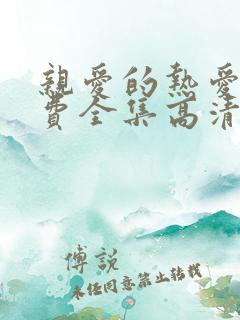 親愛的熱愛
費全集高清
傅説
未经同意禁止转载